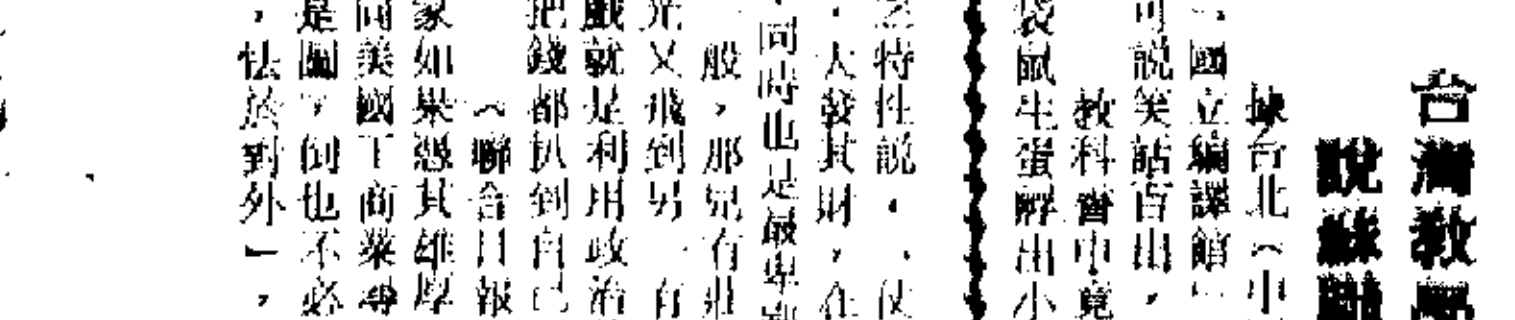 台灣教
說蘇聯
據台北︵中
﹁國立編譯館﹂
可說笑話百出，
教科書中竟
袋鼠生蛋孵出小
之特性說．仗
．大發其財，在
．同時也是最卑
般，那兒有
光又飛到另一
戲就是利用政治
把錢都扒到自己
︵聯合日報
家如果憑其雄厚
向美國工商業
是圖﹂倒也不必
，怯於對外﹂，